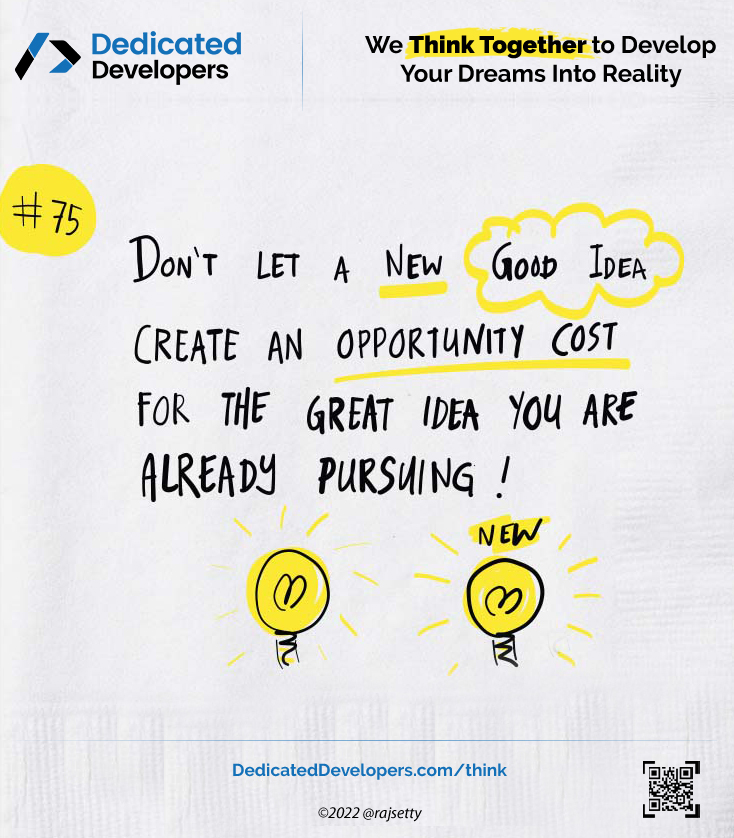 Dedicated
Developers
We Think Together to Develop
Your Dreams Into Reality
#75
DON'T LET A NEW GOOD IDEA
CREATE AN OPPORTUNITY COST
FOR THE GREAT IDEA YOU ARE
ALREADY PURSUING!
NEW
DedicatedDevelopers.com/think
©2022 @rajsetty